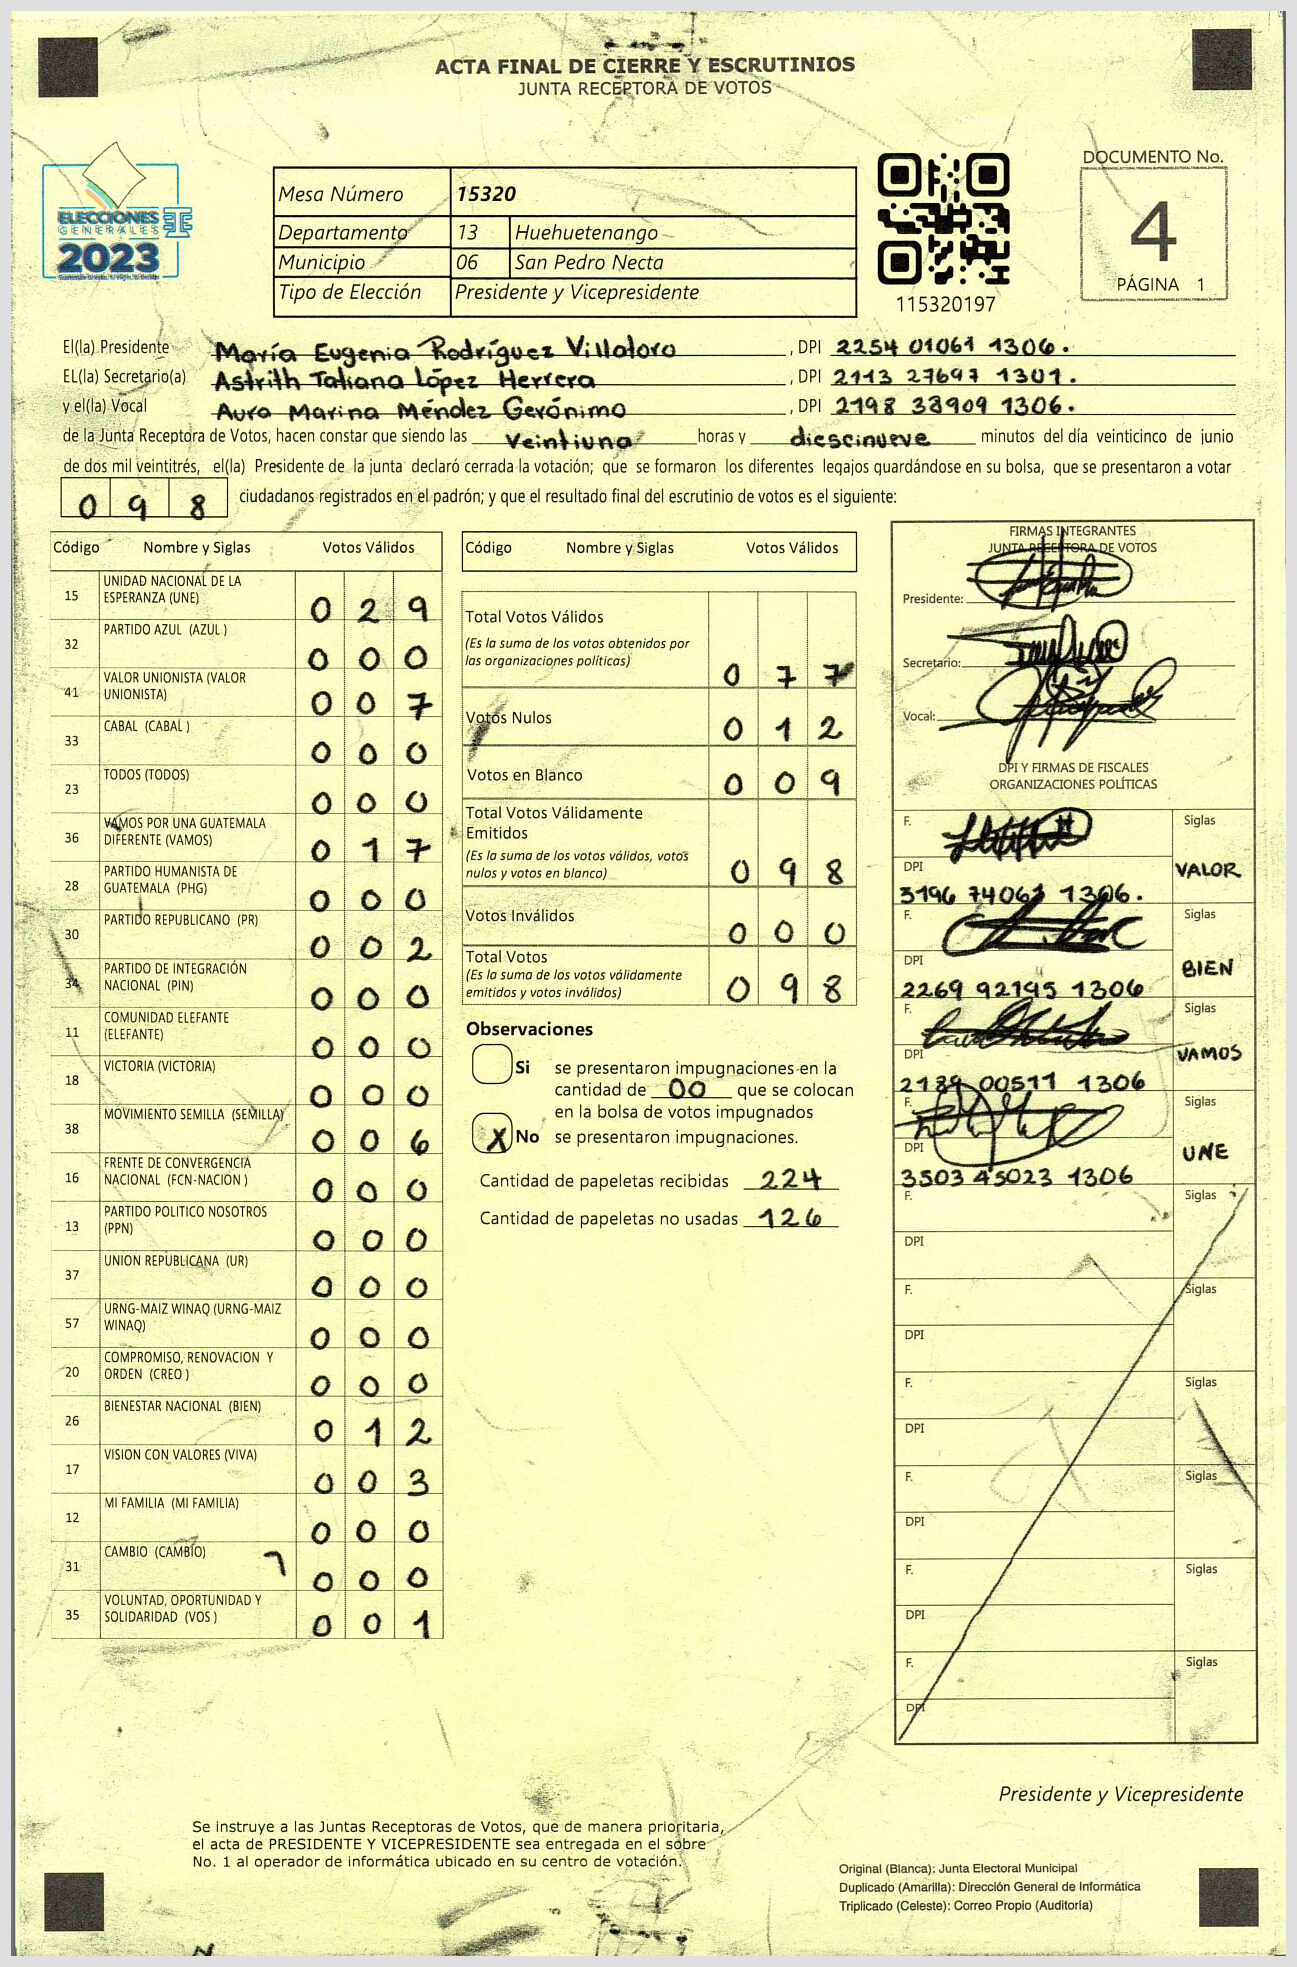 ACTA FINAL DE CIERRE Y ESCRUTINIOS
JUNTA RECEPTORA DE VOTOS
ELECCIONES
GENERALES
2023
Mesa Número 15320
Departamento 13 Huehuetenango
Municipio 06 San Pedro Necta
Tipo de Elección Presidente y Vicepresidente
115320197
DOCUMENTO No.
4
PÁGINA 1
El(la) Presidente María Eugenia Rodríguez Villatoro , DPI 2254 01061 1306.
EL(la) Secretario(a) Astrith Tatiana López Herrera , DPI 2113 27697 1301.
y el(la) Vocal Aura Marina Méndez Gerónimo , DPI 2198 38909 1306.
de la Junta Receptora de Votos, hacen constar que siendo las veintiuna horas y diescinueve minutos del día veinticinco de junio
de dos mil veintitrés, el(la) Presidente de la junta declaró cerrada la votación; que se formaron los diferentes legajos guardándose en su bolsa, que se presentaron a votar
0 9 8 ciudadanos registrados en el padrón; y que el resultado final del escrutinio de votos es el siguiente:
Código Nombre y Siglas Votos Válidos
15 UNIDAD NACIONAL DE LA
ESPERANZA (UNE) 0 2 9
32 PARTIDO AZUL (AZUL ) 0 0 0
41 VALOR UNIONISTA (VALOR
UNIONISTA) 0 0 7
33 CABAL (CABAL ) 0 0 0
23 TODOS (TODOS) 0 0 0
36 VAMOS POR UNA GUATEMALA
DIFERENTE (VAMOS) 0 1 7
28 PARTIDO HUMANISTA DE
GUATEMALA (PHG) 0 0 0
30 PARTIDO REPUBLICANO (PR) 0 0 2
34 PARTIDO DE INTEGRACIÓN
NACIONAL (PIN) 0 0 0
11 COMUNIDAD ELEFANTE
(ELEFANTE) 0 0 0
18 VICTORIA (VICTORIA) 0 0 0
38 MOVIMIENTO SEMILLA (SEMILLA) 0 0 6
16 FRENTE DE CONVERGENCIA
NACIONAL (FCN-NACION ) 0 0 0
13 PARTIDO POLITICO NOSOTROS
(PPN) 0 0 0
37 UNION REPUBLICANA (UR) 0 0 0
57 URNG-MAIZ WINAQ (URNG-MAIZ
WINAQ) 0 0 0
20 COMPROMISO, RENOVACION Y
ORDEN (CREO ) 0 0 0
26 BIENESTAR NACIONAL (BIEN) 0 1 2
17 VISION CON VALORES (VIVA) 0 0 3
12 MI FAMILIA (MI FAMILIA) 0 0 0
31 CAMBIO (CAMBIO) 0 0 0
35 VOLUNTAD, OPORTUNIDAD Y
SOLIDARIDAD (VOS ) 0 0 1
Código Nombre y Siglas Votos Válidos
Total Votos Válidos
(Es la suma de los votos obtenidos por
las organizaciones políticas) 0 7 7
Votos Nulos 0 1 2
Votos en Blanco 0 0 9
Total Votos Válidamente
Emitidos
(Es la suma de los votos válidos, votos
nulos y votos en blanco) 0 9 8
Votos Inválidos 0 0 0
Total Votos
(Es la suma de los votos válidamente
emitidos y votos inválidos) 0 9 8
Observaciones
Si se presentaron impugnaciones en la
cantidad de 00 que se colocan
en la bolsa de votos impugnados
X No se presentaron impugnaciones.
Cantidad de papeletas recibidas 224
Cantidad de papeletas no usadas 126
FIRMAS INTEGRANTES
JUNTA RECEPTORA DE VOTOS
Presidente:
Secretario:
Vocal:
DPI Y FIRMAS DE FISCALES
ORGANIZACIONES POLÍTICAS
F. Siglas
DPI VALOR
3196 74061 1306.
F. Siglas
DPI BIEN
2269 92195 1306
F. Siglas
DPI VAMOS
2189 00511 1306
F. Siglas
DPI UNE
3503 45023 1306
F. Siglas
DPI
F. Siglas
DPI
F. Siglas
DPI
F. Siglas
DPI
F. Siglas
DPI
F. Siglas
DPI
Presidente y Vicepresidente
Se instruye a las Juntas Receptoras de Votos, que de manera prioritaria,
el acta de PRESIDENTE Y VICEPRESIDENTE sea entregada en el sobre
No. 1 al operador de informática ubicado en su centro de votación.
Original (Blanca): Junta Electoral Municipal
Duplicado (Amarilla): Dirección General de Informática
Triplicado (Celeste): Correo Propio (Auditoría)